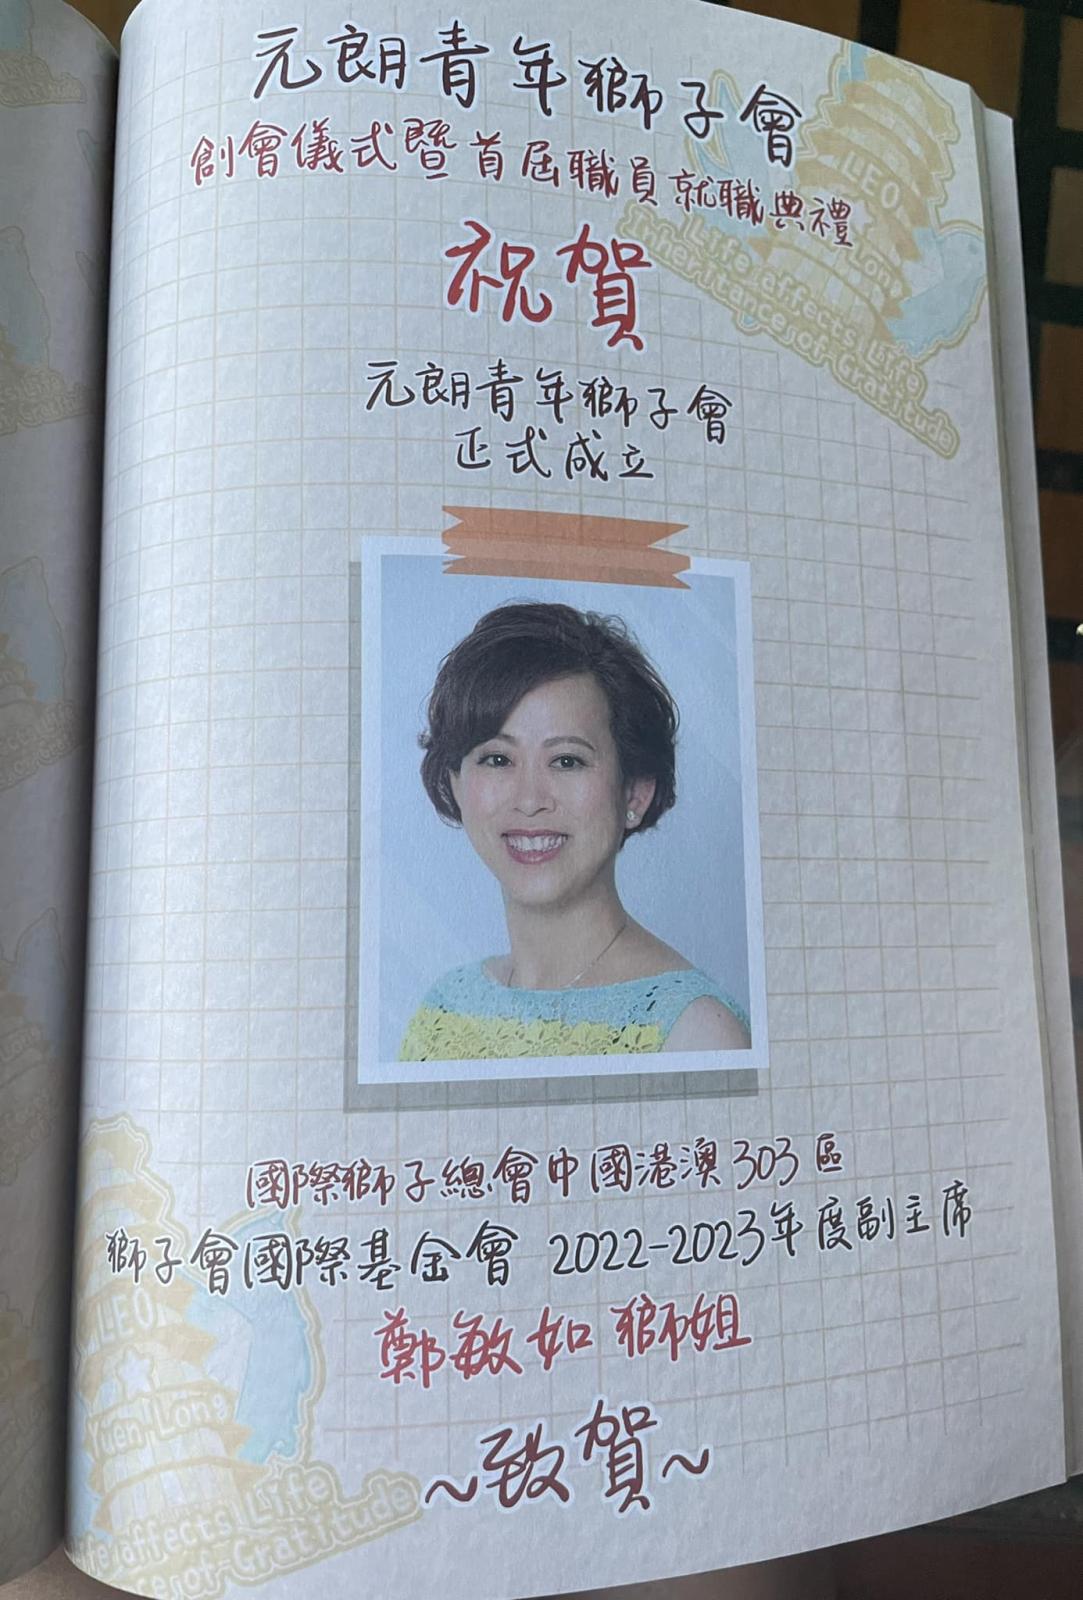 元朗青年獅子會
創會儀式暨首屆職員就職典禮
LEO
Long
Life affects Life
Inheritance of Gratitude
祝賀
元朗青年獅子會
正式成立
國際獅子總會中國港澳303區
獅子會國際基金會 2022-2023年度副主席
鄭敏如獅姐
~致賀~
LEO
Yuen Long
Life affects Life
of Gratitude